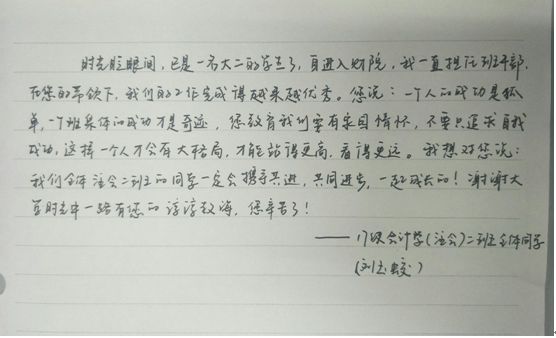 时光眨眼间,已是一名大二的学生了,自进入财院,我一直担任班干部,
在您的带领下,我们的工作完成得越来越优秀。您说:一个人的成功是孤
单,一个班集体的成功才是奇迹,您教育我们要有家国情怀,不要只追求自我
成功,这样一个人才会有大格局,才能站得更高,看得更远。我想对您说:
我们全体注会二班的同学一定会携手共进,共同进步,一起成长的!谢谢大
学时光中一路有您的谆谆教诲,您辛苦了!
——17级会计学(注会)二班全体同学
(刘玉姣)